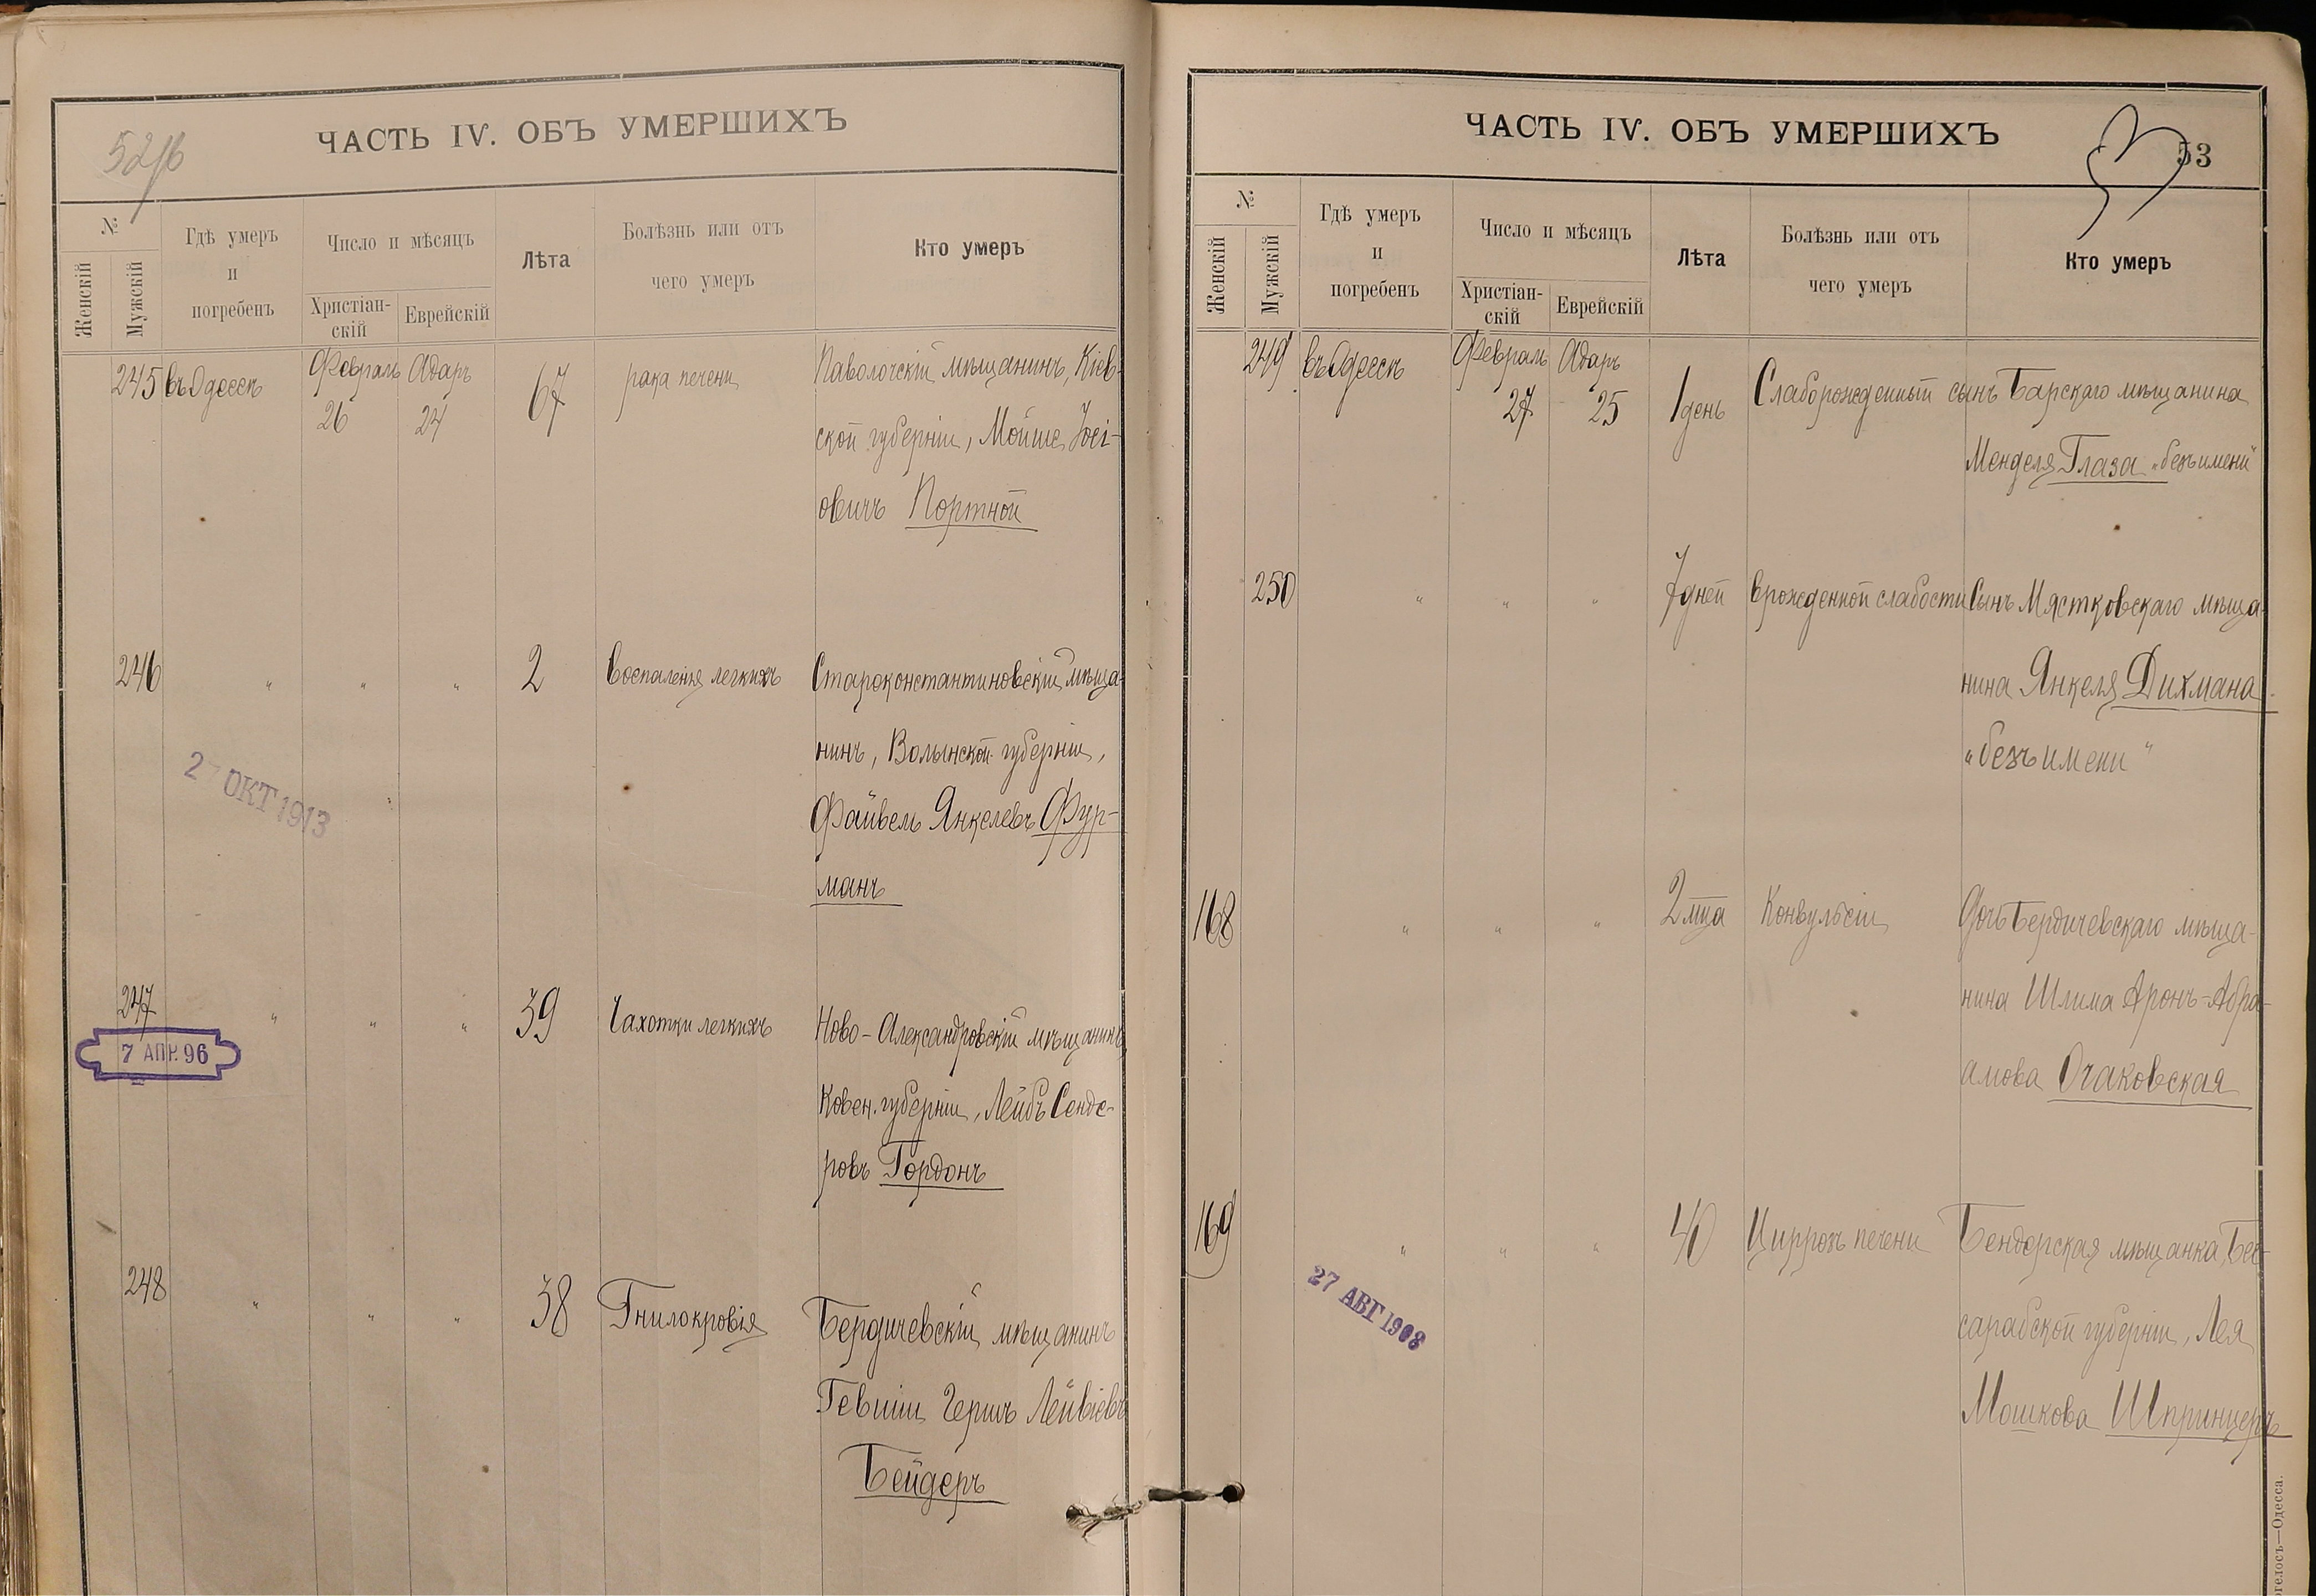 ЧАСТЬ IV. ОБЪ УМЕРШИХЪ
№
Женскій
Мужскій
Гдѣ умеръ
и
погребенъ
Число и мѣсяцъ
Христіан-
скій
Еврейскій
Лѣта
Болѣзнь или отъ
чего умеръ
Кто умеръ
245 въ Одессѣ Февраль Адаръ 67 рака печени Паволочскій мѣщанинъ, Кіев-
26 24 ской губерніи, Мойше Іосі-
овичъ Портной
246 " " " 2 Воспаленія легкихъ Староконстантиновскій мѣща-
нинъ, Волынской губерніи,
Файвель Янкелевъ Фур-
манъ
27 ОКТ 1913
247 " " " 39 Чахотки легкихъ Ново-Александровскій мѣщанинъ
7 АПР. 96
Ковен. губерніи, Лейбъ Сенде-
ровъ Гордонъ
248 " " " 38 Гнилокровія Бердичевскій мѣщанинъ
Гершъ Лейвіевъ
Бейдеръ
ЧАСТЬ IV. ОБЪ УМЕРШИХЪ
53
№
Женскій
Мужскій
Гдѣ умеръ
и
погребенъ
Число и мѣсяцъ
Христіан-
скій
Еврейскій
Лѣта
Болѣзнь или отъ
чего умеръ
Кто умеръ
249 въ Одессѣ Февраль Адаръ
27 25 1 день Слаборожденный сынъ Барскаго мѣщанина
Менделя Глаза „безъ имени“
250 " " " 7 дней врожденной слабости Сынъ Мястковскаго мѣща-
нина Янкеля Дихмана
„безъ имени“
168 " " " 2 мца Конвульсіи Дочь Бердичевскаго мѣща-
нина Шлима Аронъ-Абра-
амова Очаковская
169 " " " 40 Цирозъ печени Бендерская мѣщанка, Бес-
сарабской губерніи, Лея
Мошкова Шпринцеръ
27 АВГ 1908
Одесса.